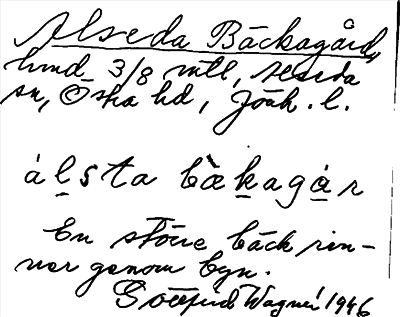 Alseda Bäckagård,
hmd 3/8 mtl, Alseda
sn, Östra hd, Jönk. l.
álsta bækagár
En större bäck rin-
ner genom byn.
Gottfrid Wagnér 1946